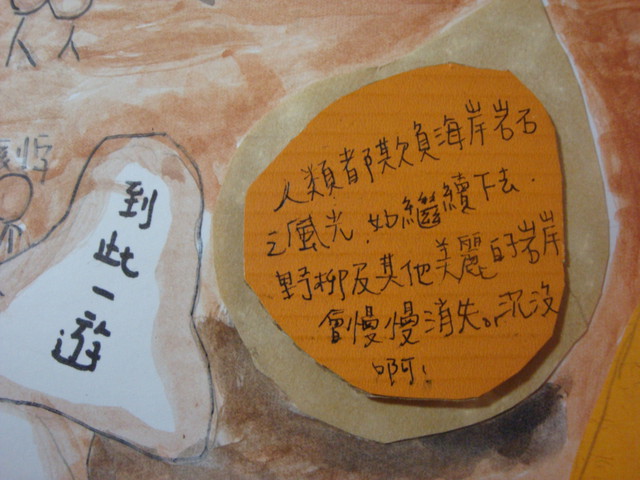 人類都欺負海岸岩石
之風光，如繼續下去．
野柳及其他美麗的岩岸
會慢慢消失。沉沒
啊！
到此一遊